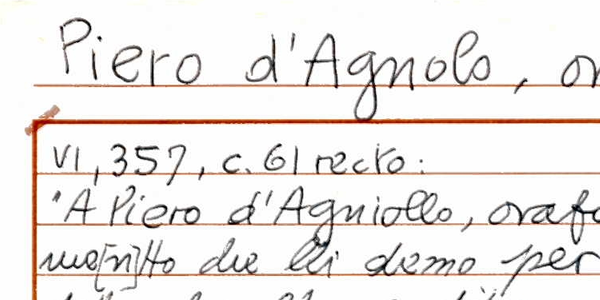 Piero d'Agnolo, or
VI, 357, c. 61 recto:
"A Piero d'Agniollo, orafo
che lli demo per